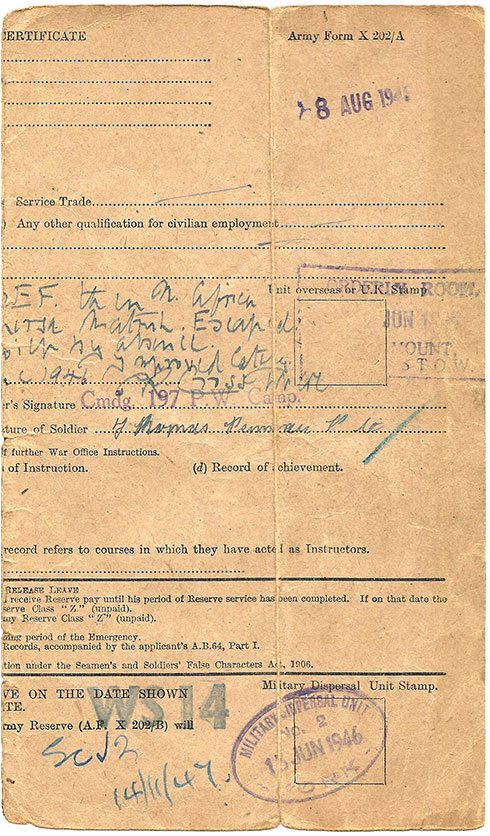 CERTIFICATE
Army Form X 202/A
8 AUG 194
Service Trade
Any other qualification for civilian employment
Unit overseas or U.K. Stamp
ROOM,
JUN
MOUNT,
STOW.
Africa
Escaped
1946
Cmdg. 197 P.W. Camp.
er's Signature
ture of Soldier Thomas
f further War Office Instructions.
of Instruction.
(d) Record of achievement.
record refers to courses in which they have acted as Instructors.
RELEASE LEAVE
receive Reserve pay until his period of Reserve service has been completed. If on that date the
serve Class "Z" (unpaid).
my Reserve Class "Z" (unpaid).
ing period of the Emergency.
Records, accompanied by the applicant's A.B.64, Part I.
tion under the Seamen's and Soldiers' False Characters Act, 1906.
VE ON THE DATE SHOWN
TE.
Military Dispersal Unit Stamp.
rmy Reserve (A.F. X 202/B) will
WS 14
MILITARY DISPERSAL UNIT
No. 2
JUN 1946
YORK
14/11/47.